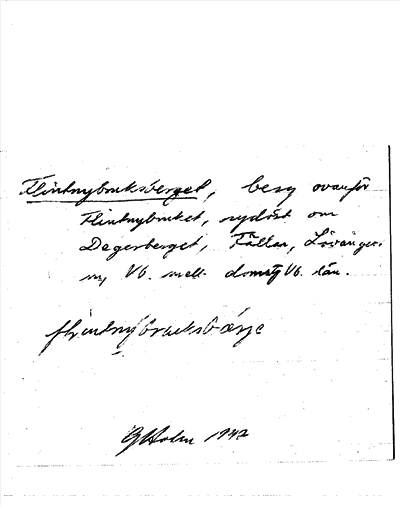 Flintnybruksberget, berg ovanför
Flintnybruket, sydöst om
Dagerberget, Fällan, Lövångers
Vb. mell. doms Vb. län.
flintnybruksbärje
GHolm 1942